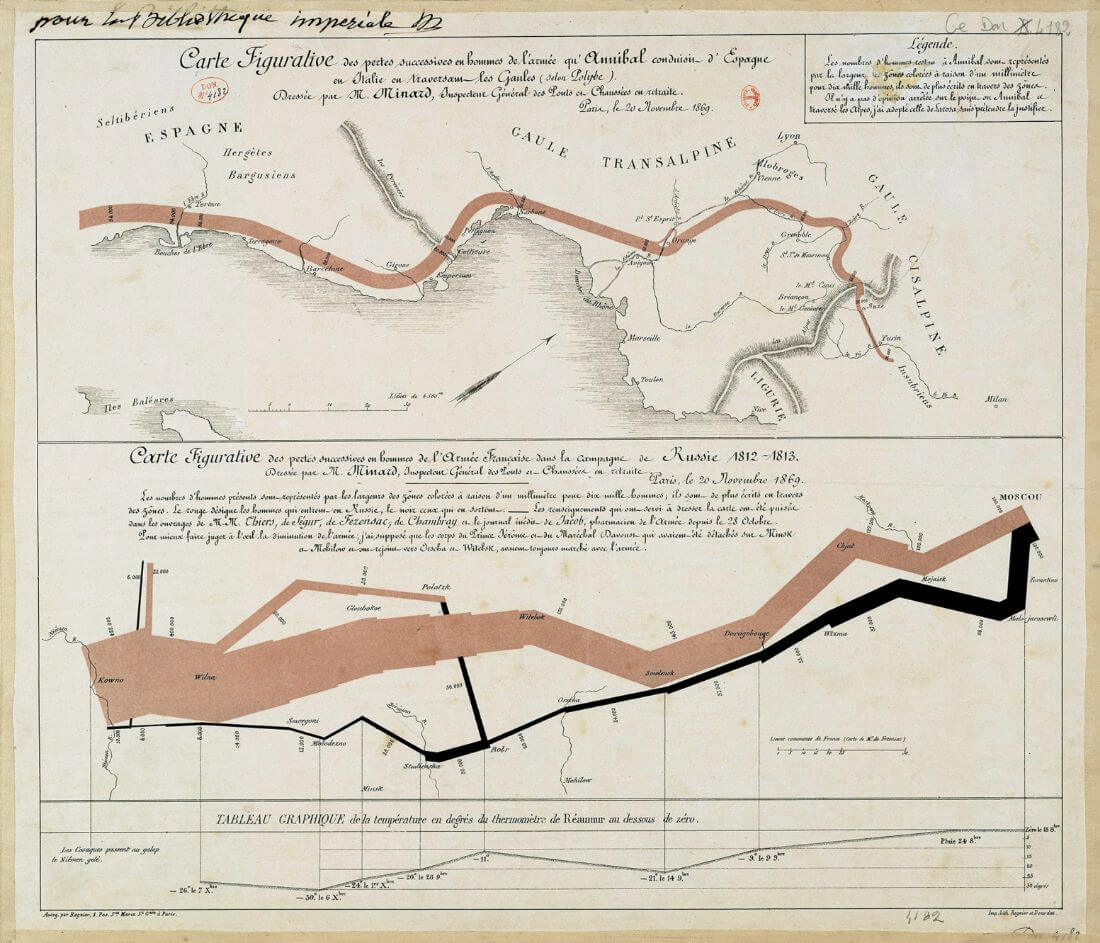 pour la Bibliothèque impériale M
Ce Don 4182
DON
4182
Carte Figurative des pertes successives en hommes de l'armée qu'Annibal conduisit d'Espagne
en Italie en traversant les Gaules (selon Polybe).
Dressée par M. Minard, Inspecteur Général des Ponts et Chaussées en retraite.
Paris, le 20 Novembre 1869.
Légende.
Les nombres d'hommes restant à Annibal sont représentés
par la largeur des zônes colorées à raison d'un millimètre
pour dix mille hommes; ils sont de plus écrits en travers des zônes.
Il n'y a pas d'opinion arrêtée sur le point où Annibal a
traversé les Alpes, j'ai adopté celle de Larosa, sans prétendre la justifier.
Seltibériens
ESPAGNE
Hergètes
Bargusiens
GAULE TRANSALPINE
Lyon
Allobroges
Vienne
GAULE
CISALPINE
les Pyrénées
l'Ebre R.
Tortose
94.000
Bouches de l'Ebre
Tarragone
Barcelone
Girone
Emporium
Collioure
Perpignan
Narbonne
l'Aude R.
Pt. St. Esprit
Orange
Avignon
Grenoble
St. Jn. de Maurienne
le Mt. Cenis
Briançon
le Mt. Genèvre
Suze
Turin
le Pô
Insubriens
Milan
les Alpes
LIGURIE
Nice
Toulon
Marseille
Iles Baléares
Carte Figurative des pertes successives en hommes de l'Armée Française dans la campagne de Russie 1812-1813.
Dressée par M. Minard, Inspecteur Général des Ponts et Chaussées en retraite.
Paris, le 20 Novembre 1869.
Les nombres d'hommes présents sont représentés par les largeurs des zônes colorées à raison d'un millimètre pour dix mille hommes; ils sont de plus écrits en travers
des zônes. Le rouge désigne les hommes qui entrent en Russie, le noir ceux qui en sortent. — Les renseignements qui ont servi à dresser la carte ont été puisés
dans les ouvrages de M.M. Thiers, de Ségur, de Fezensac, de Chambray et le journal inédit de Jacob, pharmacien de l'Armée depuis le 28 Octobre.
Pour mieux faire juger à l'œil la diminution de l'armée, j'ai supposé que les corps du Prince Jérôme et du Maréchal Davoust qui avaient été détachés sur Minsk
et Mohilow et ont rejoint vers Orscha et Witebsk, avaient toujours marché avec l'armée.
MOSCOU
100.000
Chjat
Mojaisk
Tarantino
Malo-jarosewli
Wizma
Dorogobouge
Smolensk
145.000
Witebsk
Polotzk
Gloubokoe
6.000
22.000
Niémen R.
Kowno
Wilna
Smorgoni
Molodezno
Minsk
Studienska
Bérézina R.
Bobr
30.000
Orscha
Mohilow
Lieues communes de France (Carte de Mr. de Fezensac)
TABLEAU GRAPHIQUE de la température en degrés du thermomètre de Réaumur au dessous de zéro.
Les Cosaques passent au galop
le Niémen gelé.
Zéro le 18 8bre
Pluie 24 8bre
— 9.° le 9 9bre
— 21.° le 14 9bre
— 11.°
— 20.° le 28 9bre
— 24.° le 1er Xbre
— 30.° le 6 Xbre
— 26.° le 7 Xbre
5
10
15
20
25
30 degrés
Autog. par Regnier, 8. Pas. Ste. Marie St. Gain à Paris.
4182
Imp. Lith. Regnier et Dourdet.
Don 4182